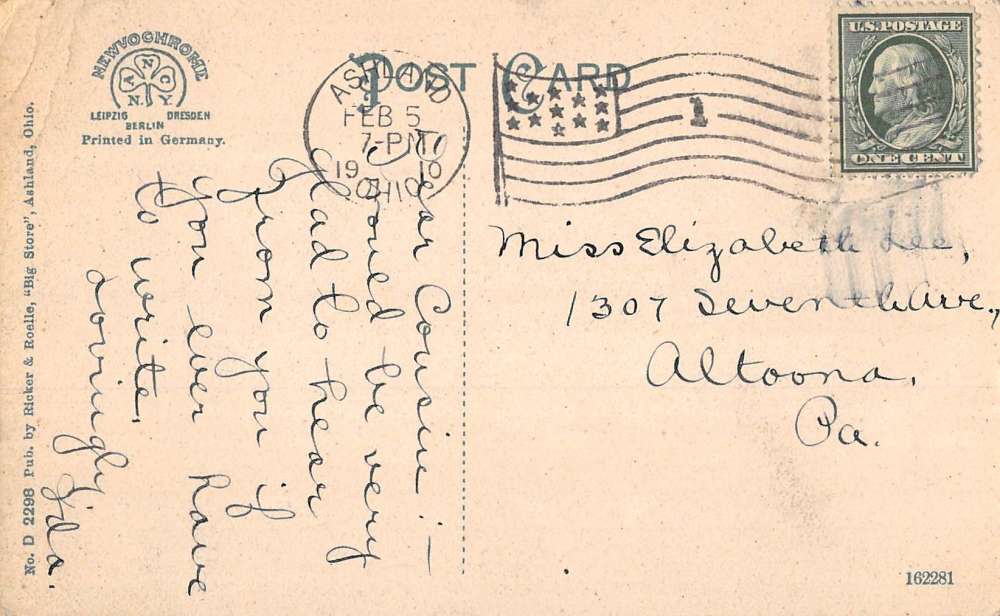 NEWVOCHROME
A N C
N.Y.
LEIPZIG DRESDEN
BERLIN
Printed in Germany.
POST CARD
ASHLAND
FEB 5
7-PM
19 10
OHIO
1
U.S. POSTAGE
ONE CENT
Dear Cousin:-
Would be very
glad to hear
from you if
you ever have
to write.
Lovingly
Ida.
Miss Elizabeth Lee,
1307 Seventh Ave.,
Altoona,
Pa.
No. D 2298 Pub. by Ricker & Roelle, "Big Store", Ashland, Ohio.
162281